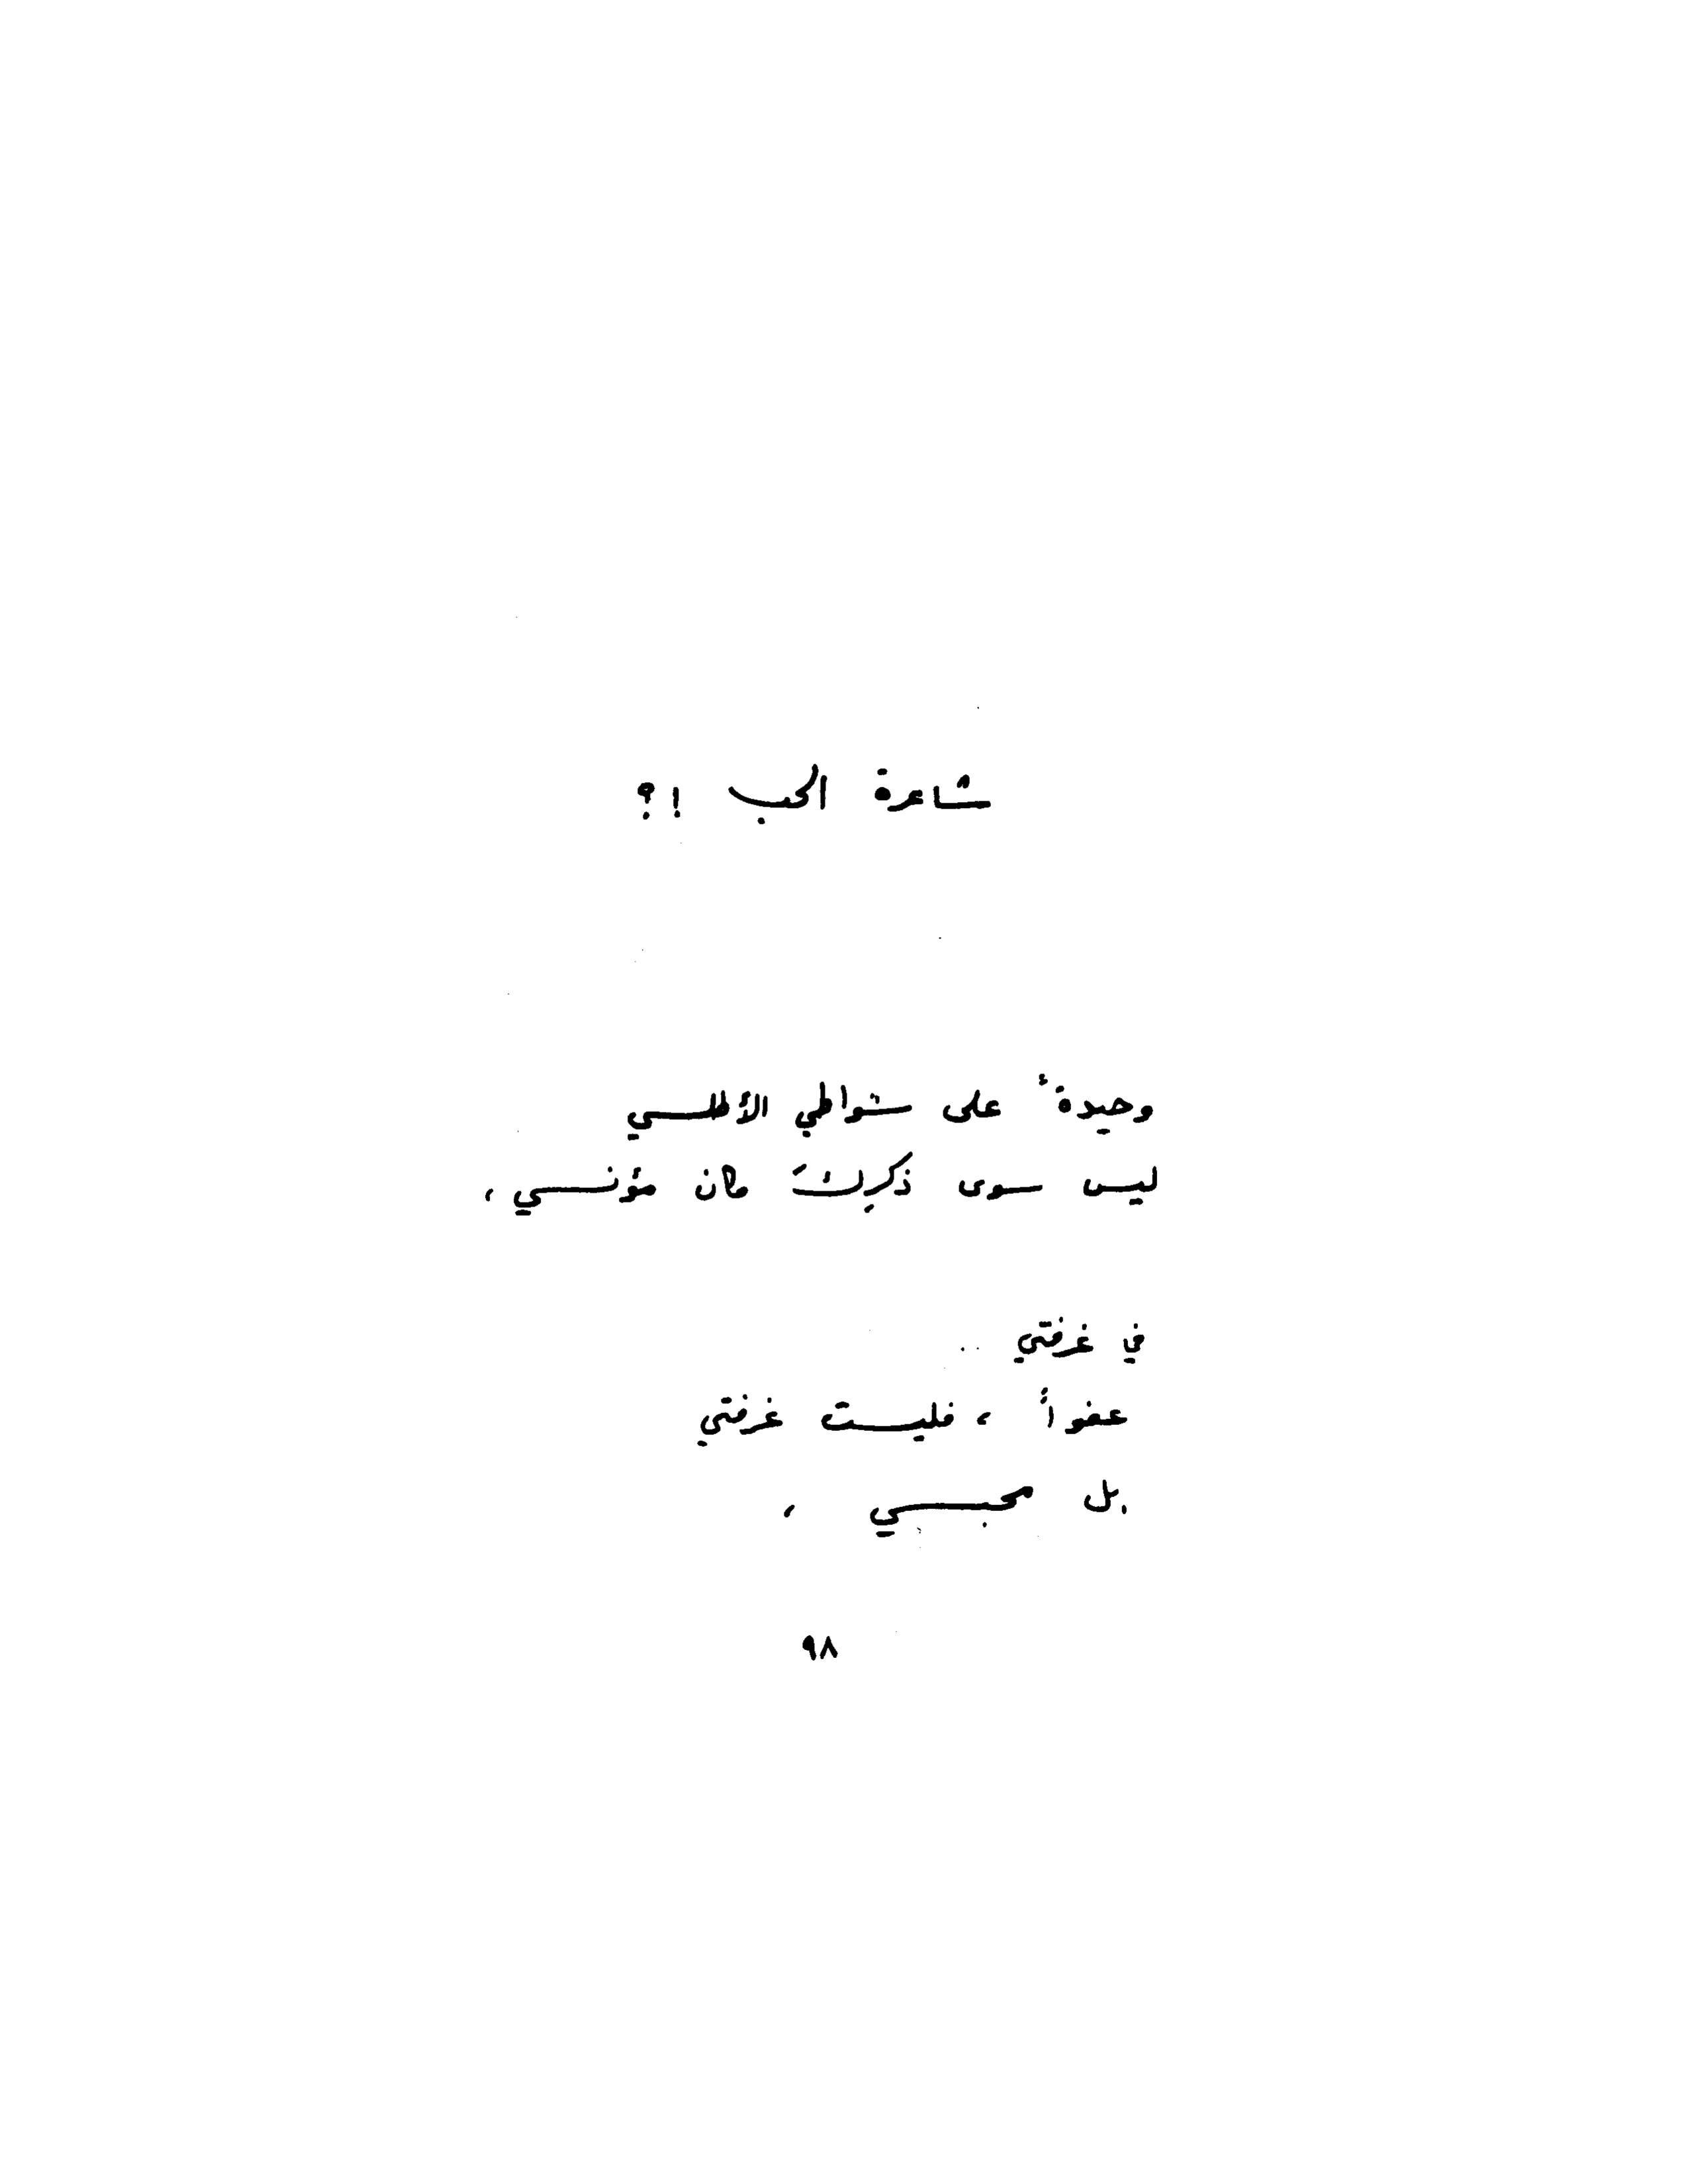 شاعرة الحب !؟
وحيدةٌ على شواطي الأطلسي
ليس سوى ذكرِكَ كان مؤنسي ،
في غرفتي ..
عفواً ، فليست غرفتي
بل محبسي ،
٩٨